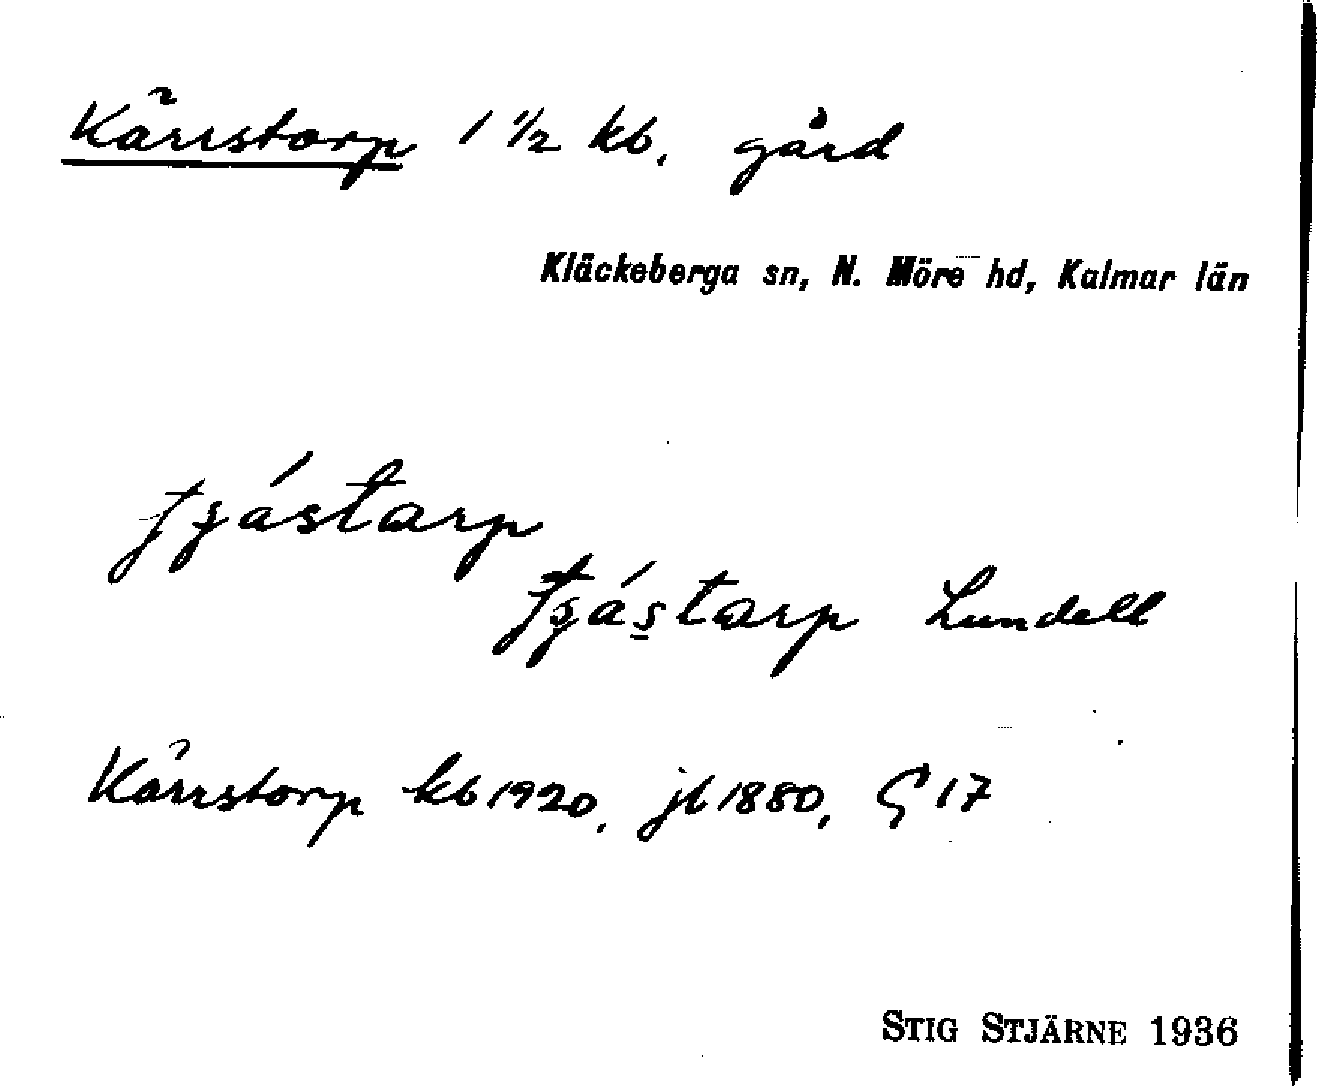 Kärrstorp 1 1/2 kb. gård
Kläckeberga sn, N. Möre hd, Kalmar län
Lundell
Kärrstorp kb 1920, jb 1880, G 17
STIG STJÄRNE 1936